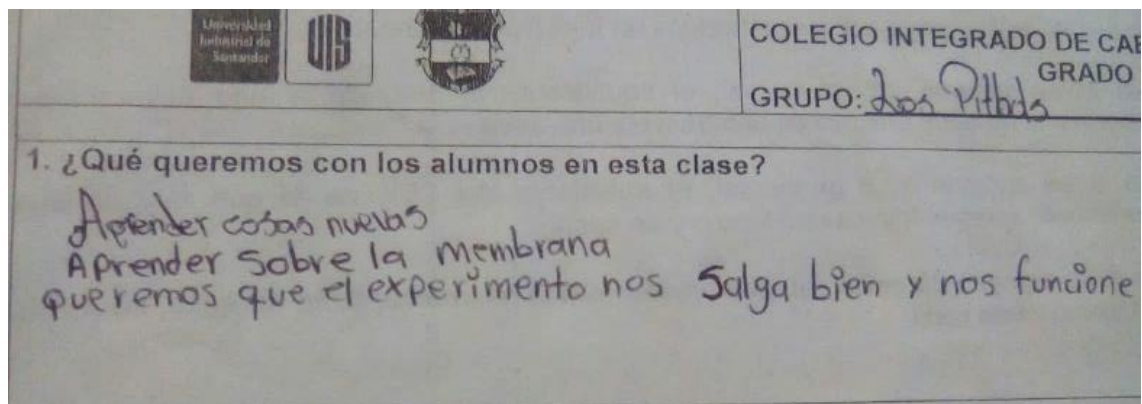 Universidad
Industrial de
Santander
UIS
COLEGIO INTEGRADO DE
GRADO
GRUPO: Los
1. ¿Qué queremos con los alumnos en esta clase?
Aprender cosas nuevas
Aprender sobre la membrana
queremos que el experimento nos salga bien y nos funcione